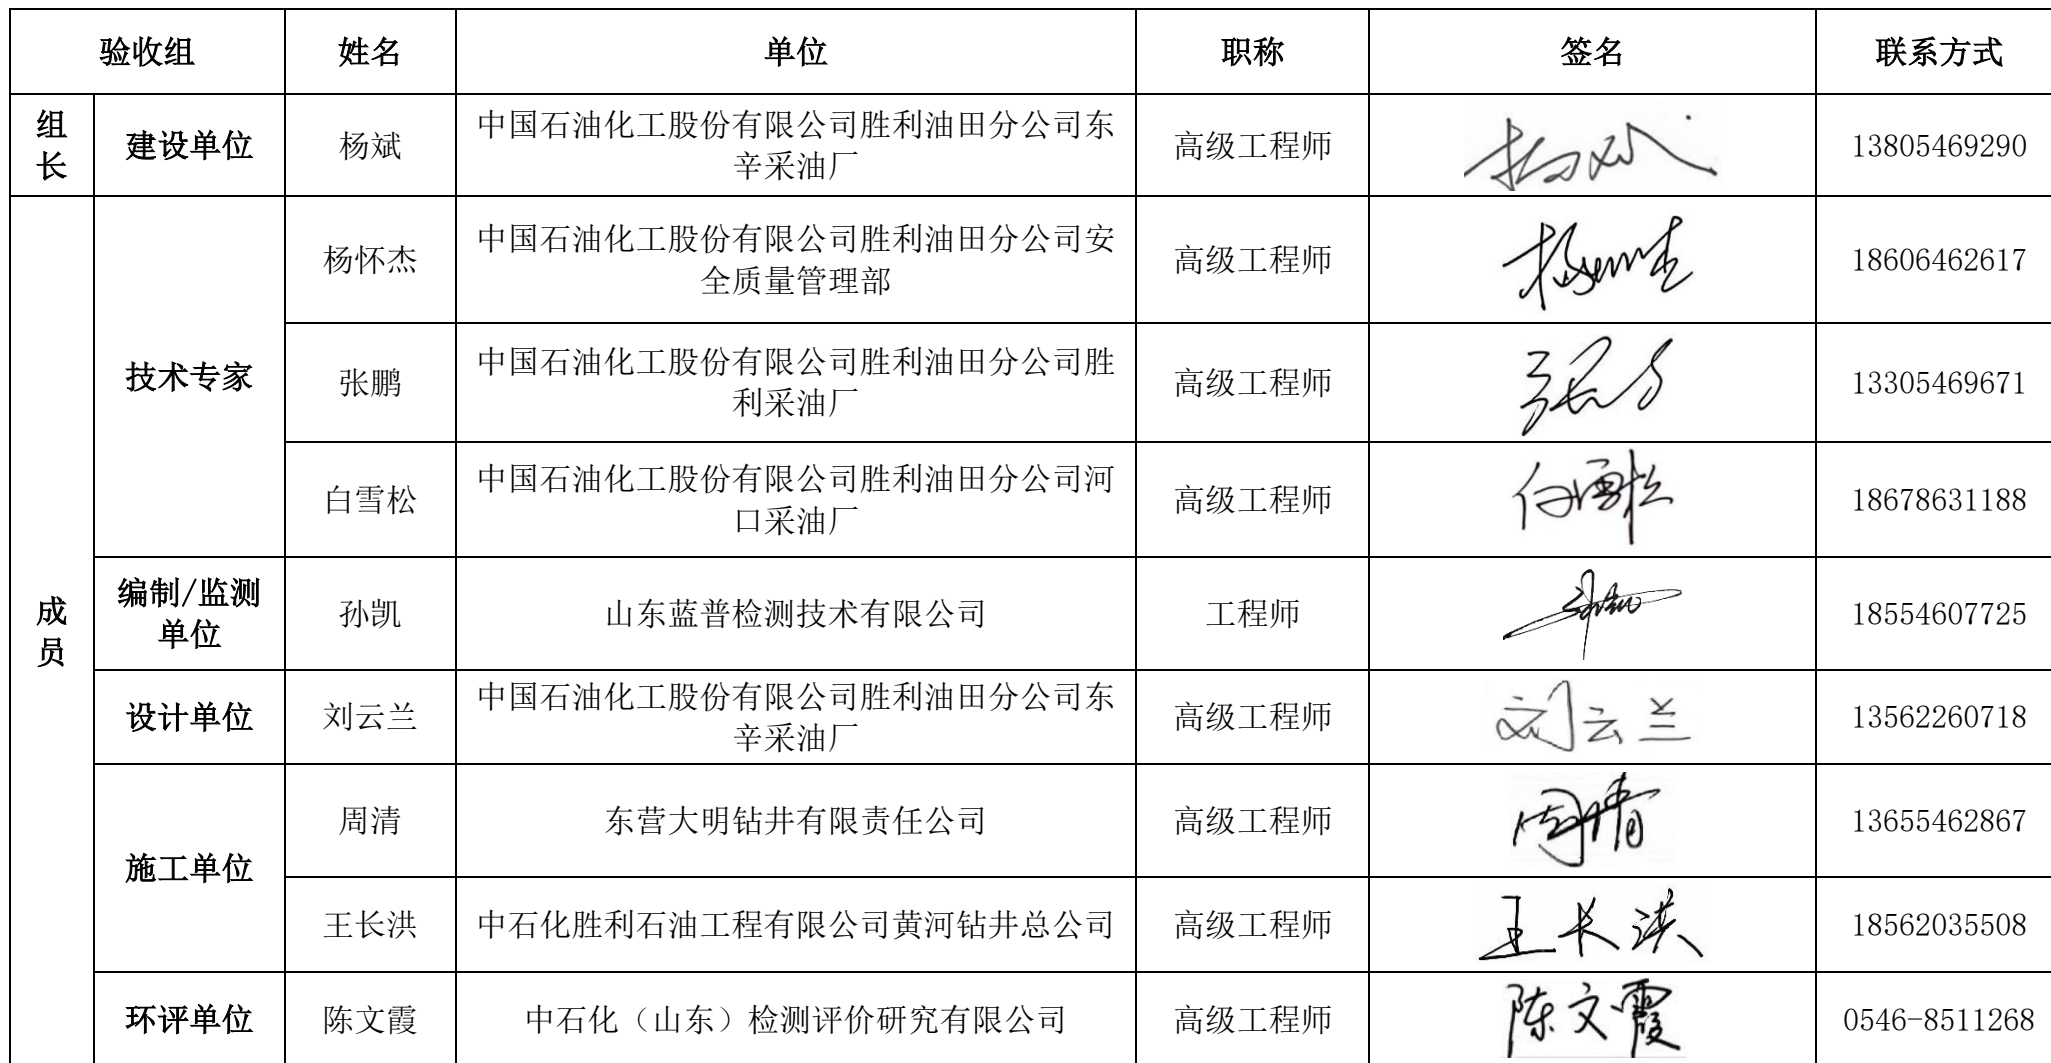 验收组 姓名 单位 职称 签名 联系方式
组长 建设单位 杨斌 中国石油化工股份有限公司胜利油田分公司东 高级工程师 杨斌 13805469290
辛采油厂
成员 技术专家 杨怀杰 中国石油化工股份有限公司胜利油田分公司安 高级工程师 18606462617
全质量管理部
张鹏 中国石油化工股份有限公司胜利油田分公司胜 高级工程师 13305469671
利采油厂
白雪松 中国石油化工股份有限公司胜利油田分公司河 高级工程师 白雪松 18678631188
口采油厂
编制/监测 孙凯 山东蓝普检测技术有限公司 工程师 18554607725
单位
设计单位 刘云兰 中国石油化工股份有限公司胜利油田分公司东 高级工程师 刘云兰 13562260718
辛采油厂
施工单位 周清 东营大明钻井有限责任公司 高级工程师 周清 13655462867
王长洪 中石化胜利石油工程有限公司黄河钻井总公司 高级工程师 王长洪 18562035508
环评单位 陈文霞 中石化（山东）检测评价研究有限公司 高级工程师 陈文霞 0546-8511268